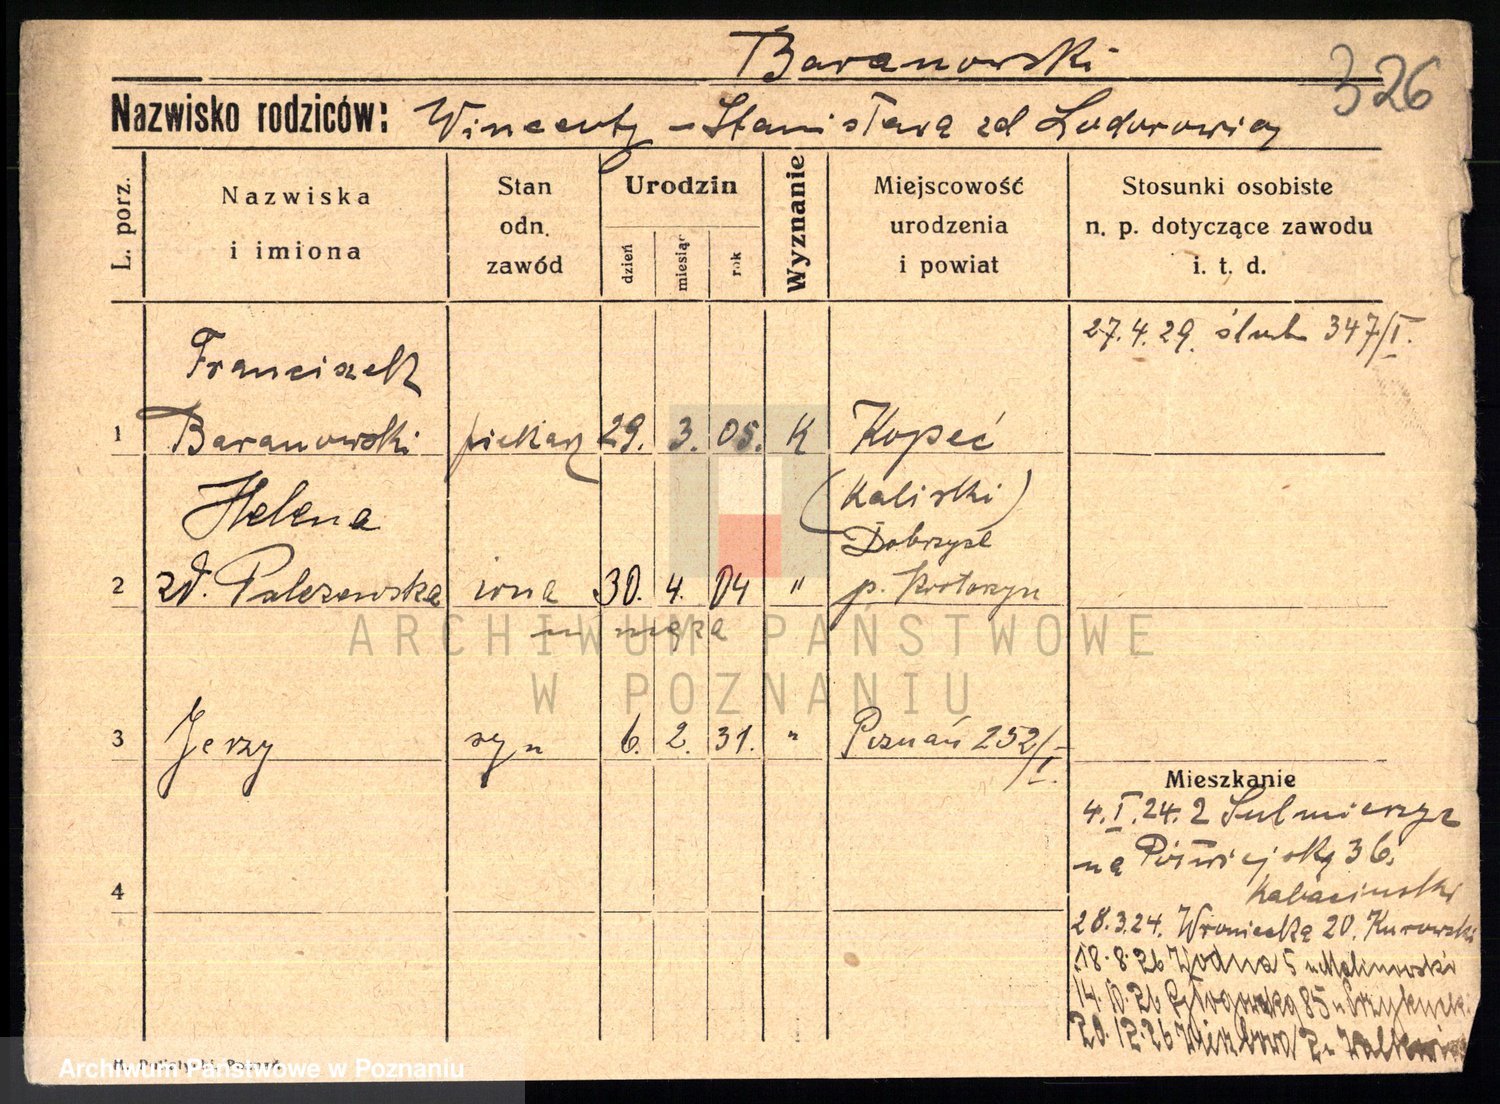 Baranowski
326
Nazwisko rodziców: Wincenty - Stanisława zd
L. porz.
Nazwiska
i imiona
Stan
odn.
zawód
Urodzin
dzień
miesiąc
rok
Wyznanie
Miejscowość
urodzenia
i powiat
Stosunki osobiste
n. p. dotyczące zawodu
i. t. d.
27.4.29. ślub 347/I.
Franciszek
1 Baranowski piekarz 29. 3. 05. K Kopeć
(Kaliski)
Helena
Dobrzyca
2 zd. żona 30. 4. 04 " p. Krotoszyn
u męża
ARCHIWUM PAŃSTWOWE
W POZNANIU
3 Jerzy syn 6. 2. 31. " Poznań 252/I.
Mieszkanie
4.I.24. z Sulmierzyc
na 36.
Kabaciński
4
28.3.24. Wroniecka 20. Kurowski
18.8.26 Wodna 5 u Malinowski
14.10.26 85 u
20.12.26
Archiwum Państwowe w Poznaniu